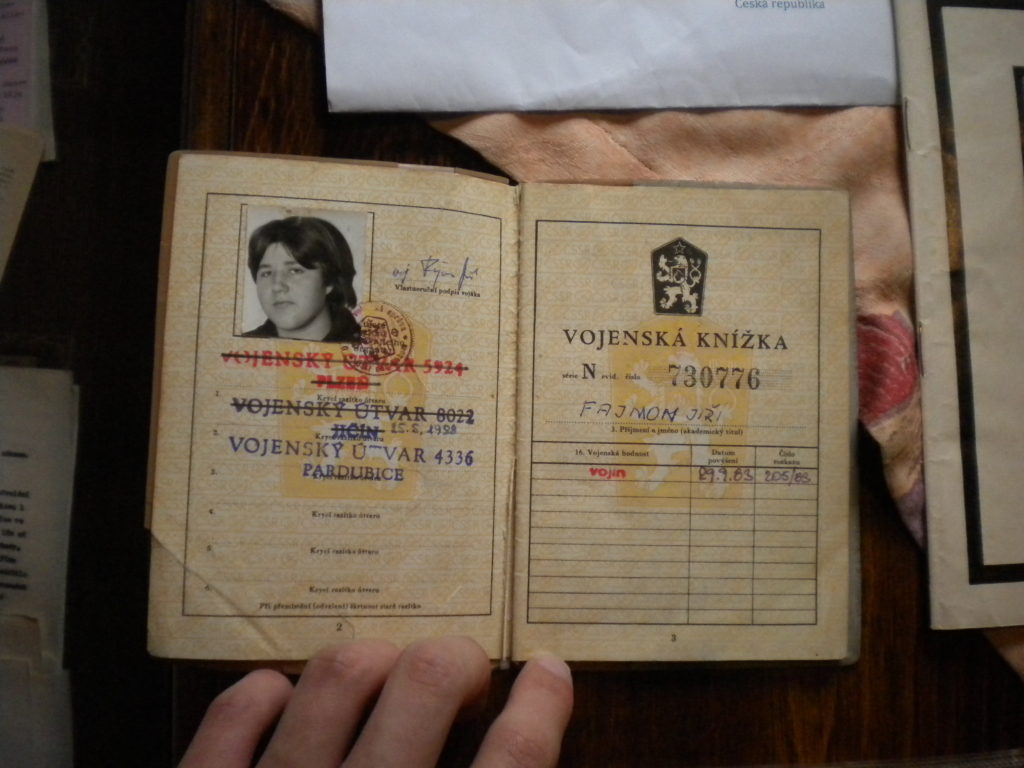 Česká republika
Vlastnoruční podpis vojáka
VOJENSKÝ ÚTVAR 5924
PLZEŇ
1.
Krycí razítko útvaru
VOJENSKÝ ÚTVAR 8022
JIČÍN
2.
Krycí razítko útvaru
VOJENSKÝ ÚTVAR 4336
PARDUBICE
3.
4.
Krycí razítko útvaru
5.
Krycí razítko útvaru
6.
Krycí razítko útvaru
Při přemístění (odvelení) škrtnout staré razítko
2
VOJENSKÁ KNÍŽKA
série N evid. číslo 730776
FAJMON JIŘÍ
3. Příjmení a jméno (akademický titul)
16. Vojenská hodnost Datum povýšení Číslo rozkazu
vojín 29.9.83 205/83
3